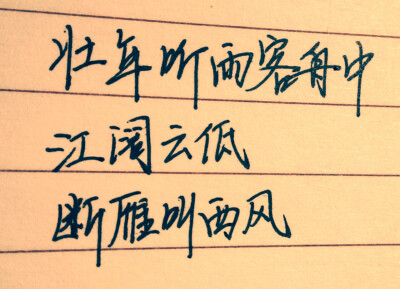 壮年听雨客舟中
江阔云低
断雁叫西风